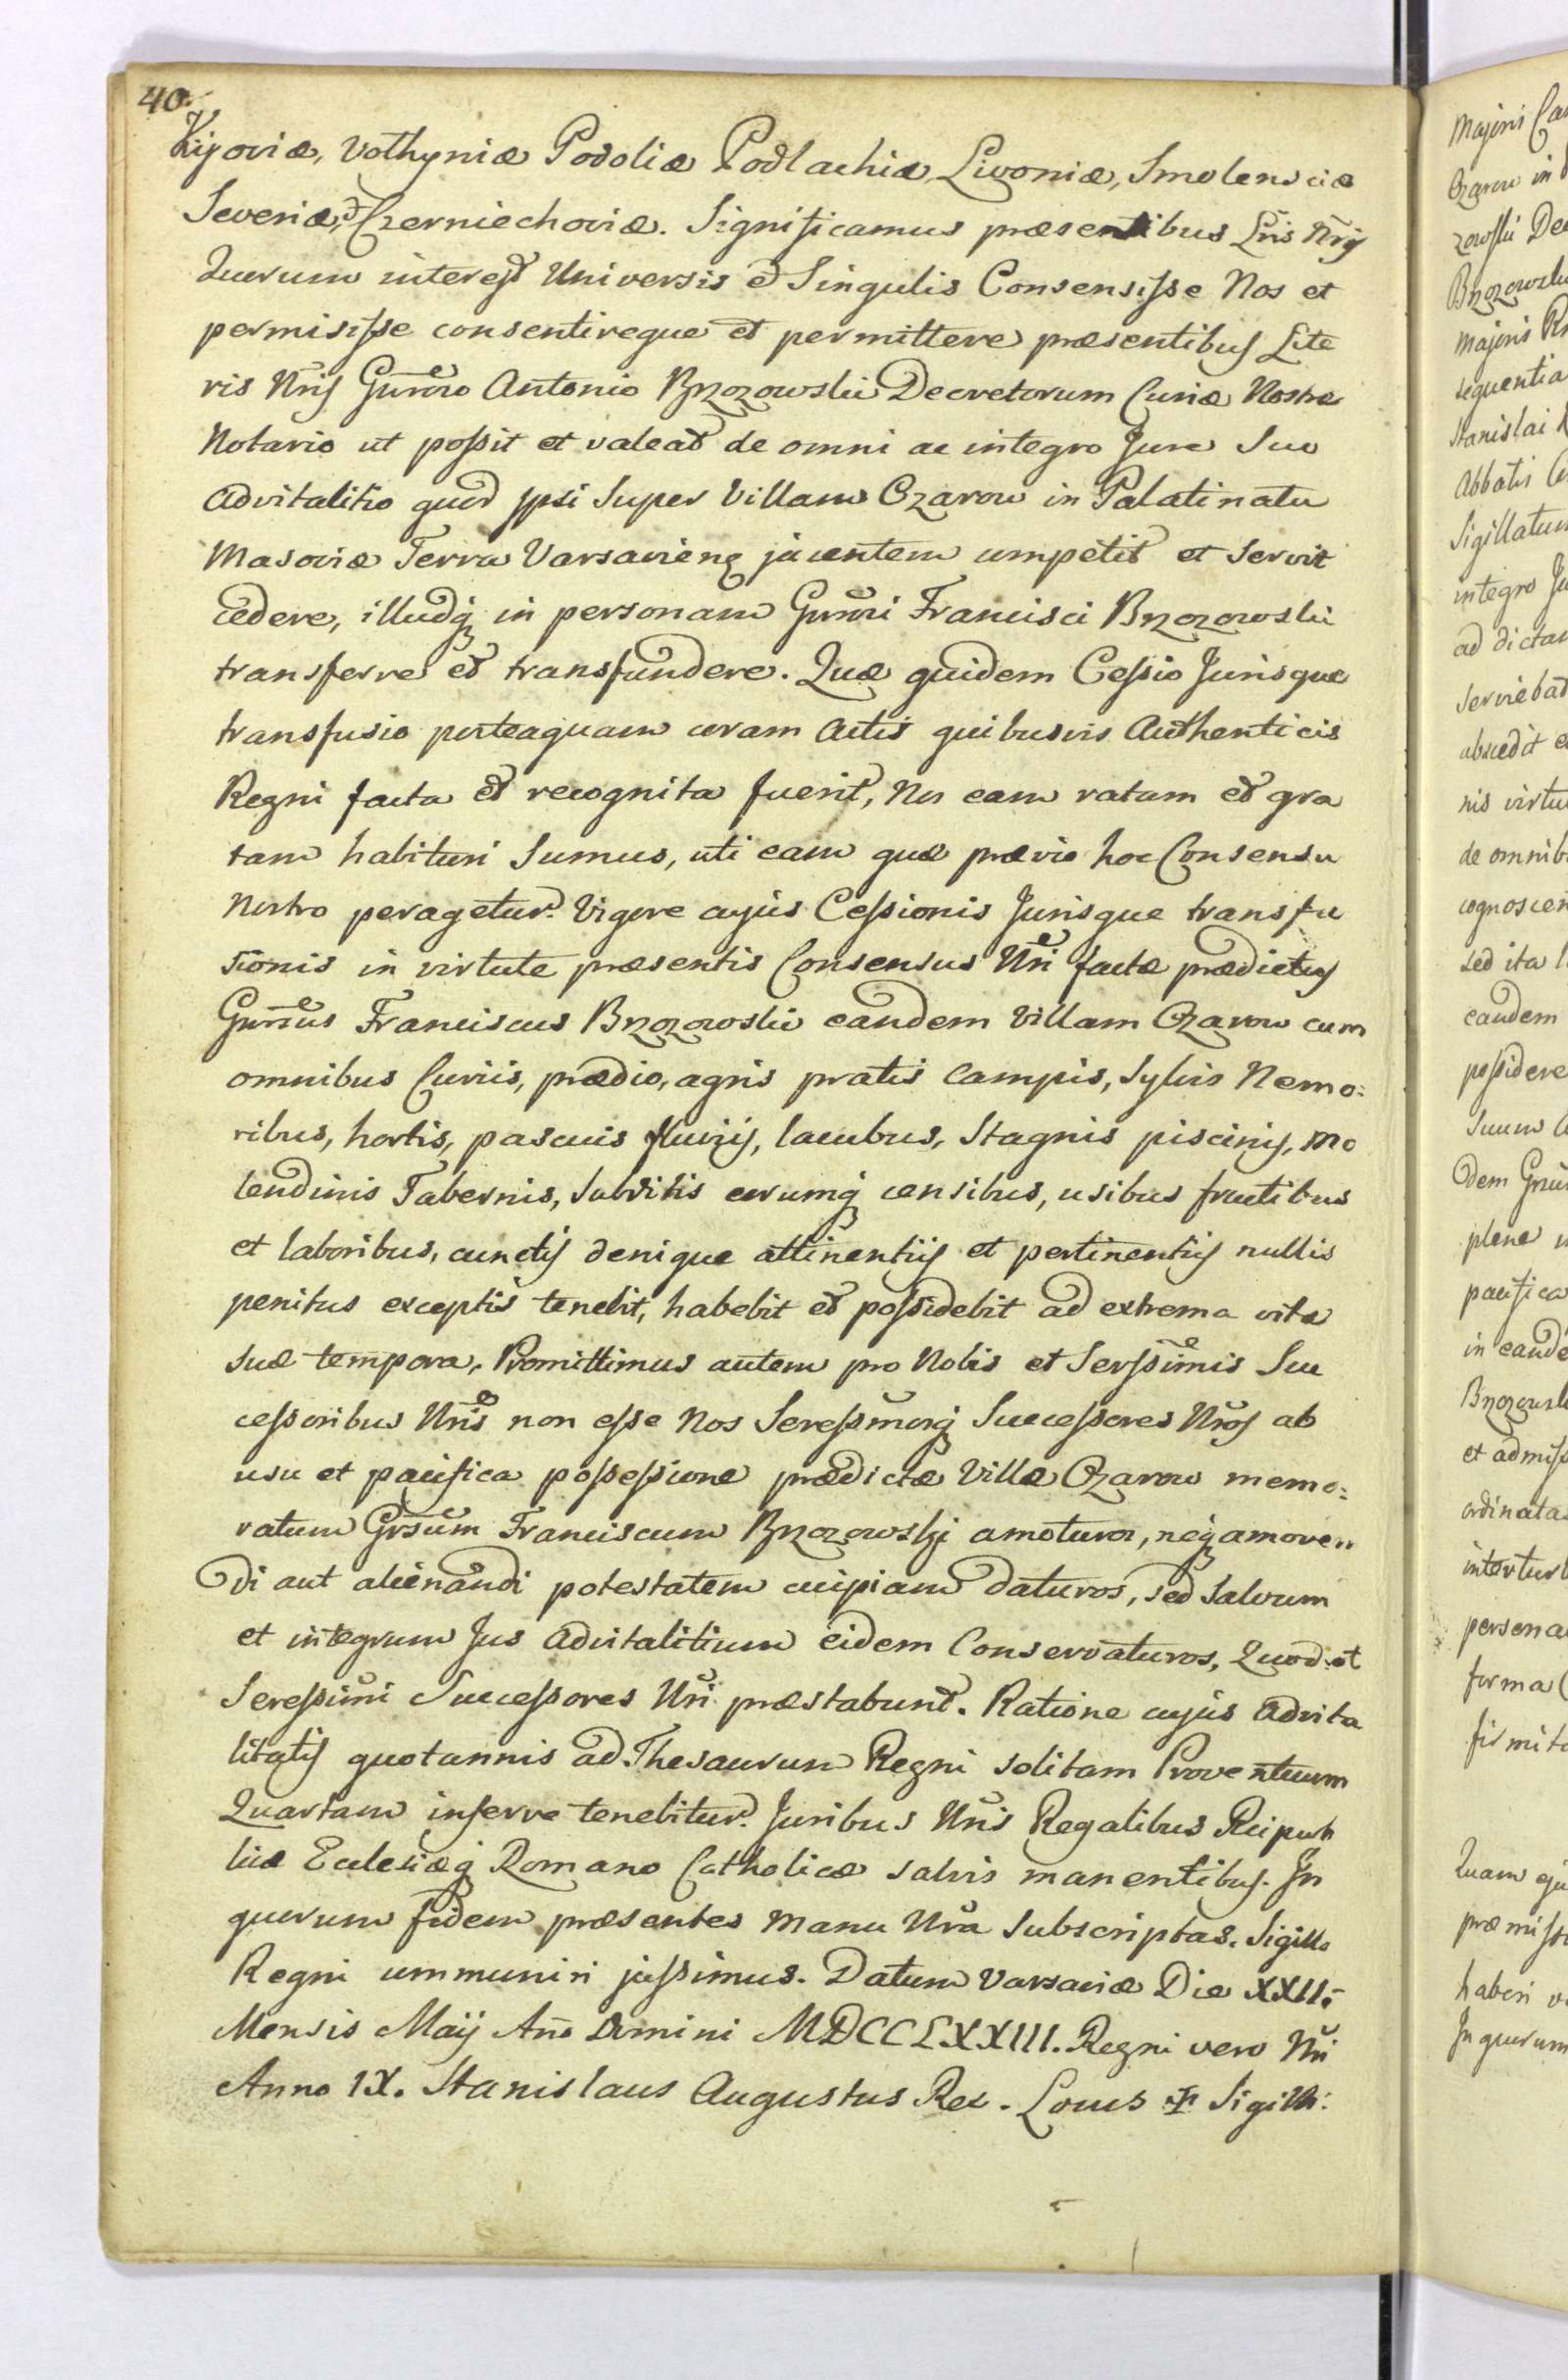 40.
Kijoviæ, Volhyniæ Podoliæ Podlachiæ Livoniæ, Smolensciæ
Severiæ, et Czerniechoviæ. Significamus præsentibus Lr̃is Nr̃is
Quorum interest Universis et Singulis Consensisse Nos et
permisisse consentireque et permittere præsentibus Lite
ris Nr̃is Gnr̃oso Antonio Brzozowski Decretorum Curiæ Nostræ
Notario ut possit et valeat de omni ac integro Jure Suo
Advitalitio quod ipsi Super Villam Ożarow in Palatinatu
Masoviæ Terra Varsavienq jacentem competit et Servit
cedere, illudq in personam Gnr̃osi Francisci Brzozowski
transferre et transfundere. Quæ quidem Cessio Jurisque
transfusio posteaquam coram Actis quibusvis Authenticis
Regni facta et recognita fuerit, Nos eam ratam et gra
tam habituri Sumus, uti eam quæ prævio hoc Consensu
Nostro peragetur. Vigore cujus Cessionis Jurisque transfu
sionis in virtute præsentis Consensus Nr̃i factæ prædictus
Gnr̃sus Franciscus Brzozowski eandem Villam Ożarow cum
omnibus Curiis, prædio, agris pratis Campis, Sylvis Nemo:
ribus, hortis, pascuis fluviis, lacubus, Stagnis piscinis, mo
lendinis Tabernis, Subditis eorumq censibus, usibus fructibus
et laboribus, cunctis denique attinentiis et pertinentiis nullis
penitus exceptis tenebit, habebit et possidebit ad extrema vitæ
suæ tempora, Promittimus autem pro Nobis et Serssimis Suc
cessoribus Nr̃is non esse Nos Seressimosq Successores Nr̃os ab
usu et pacifica possessione prædictæ Villæ Ożarow memo:
ratum Grsum Franciscum Brzozowski amoturos, neq amoven
di aut alienandi potestatem cuipiam daturos, sed Salvum
et integrum Jus Advitalitium eidem Conservaturos, Quod et
Seressimi Successores Nr̃i præstabunt. Ratione cujus Advita
litatis quotannis ad Thesaurum Regni solitam Proventuum
Quartam inferre tenebitur. Juribus Nr̃is Regalibus Reipub
licæ Eclesiæq Romano Catholicæ salvis manentibus. In
quorum fidem præsentes manu Nr̃a Subscriptas. Sigillo
Regni communiri jussimus. Datum Varsaviæ Die XXII.
Mensis Maij Ano Domini MDCCLXXIII. Regni vero Nr̃i
Anno IX. Stanislaus Augustus Rex. Locus ☩ Sigilli:
Majoris
in
sequentia
Stanislai
Abbatis
Sigillatum
integro
ad dictam
nis
sed ita
eandem
possidere
plene
et
forma
Quam
haberi
In quorum